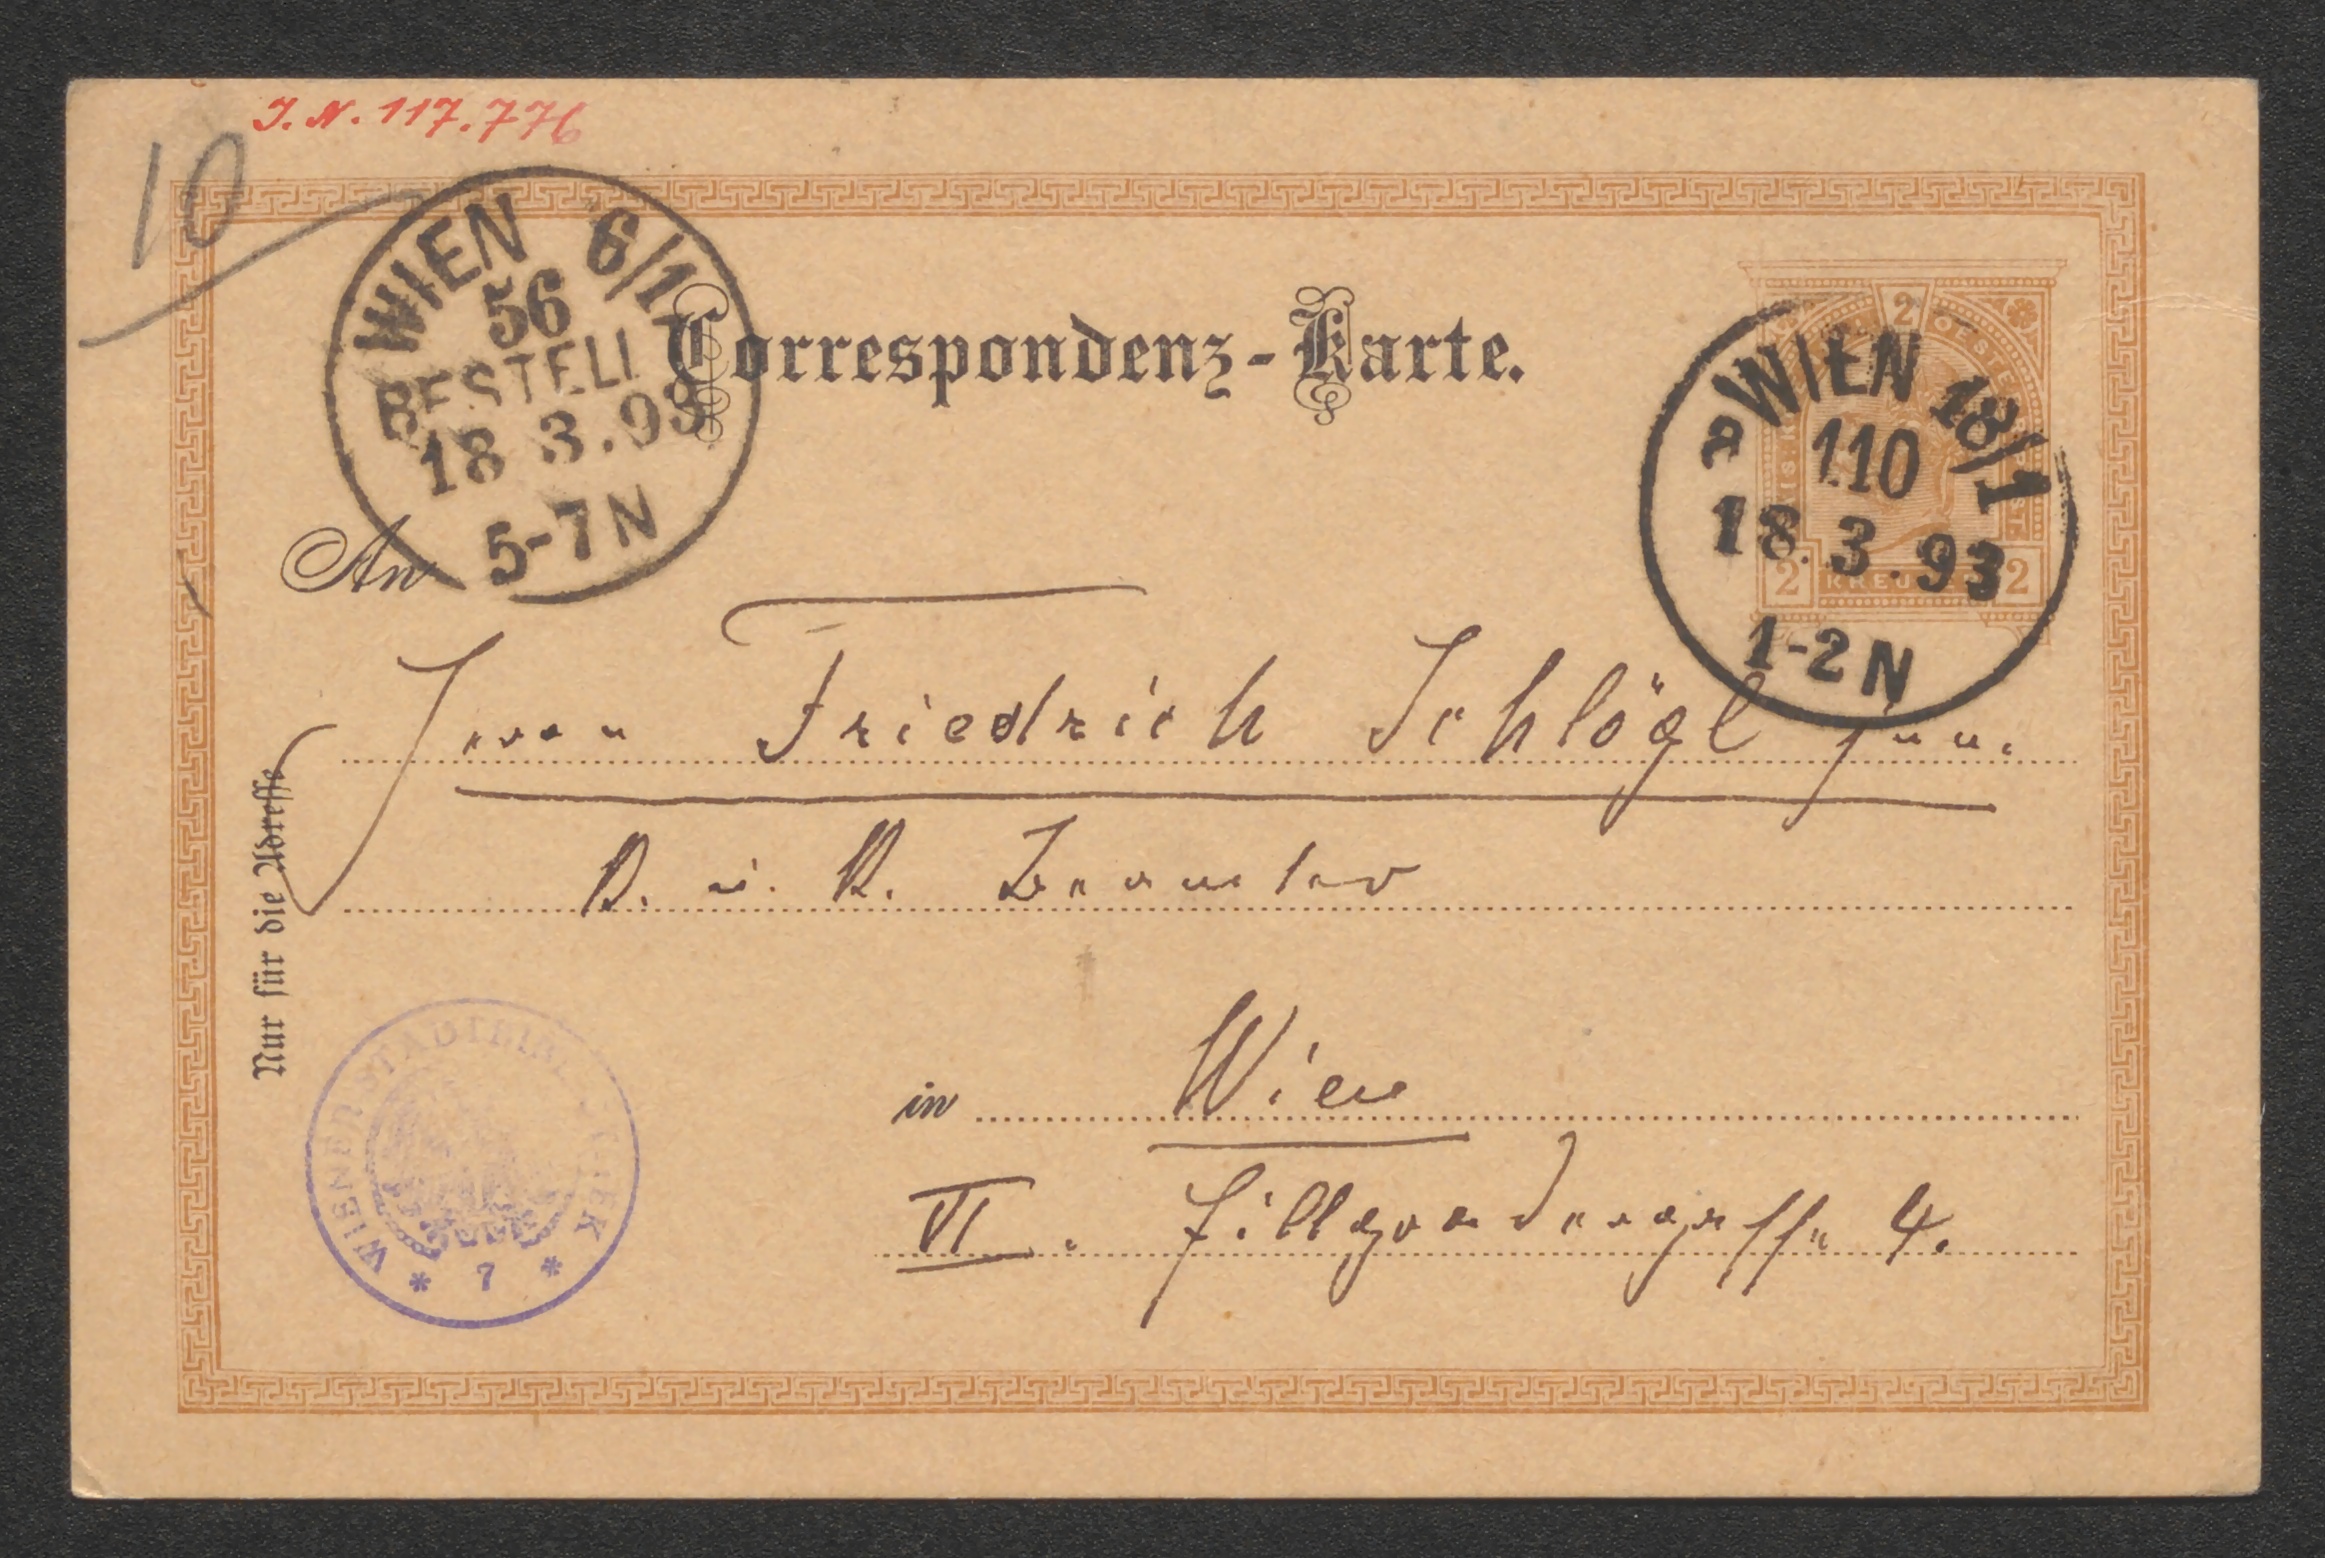 J. N. 117.776
10
WIEN 6/1
56
BESTELLT
18 3.93
5-7N
Correspondenz-Karte.
2
WIEN 18/1
110
18.3.93
1-2N
2 KREUZER 2
An
Herrn Friedrich Schlögl jun.
K. u. K. Beamter
in Wien
VI. Fillgradergasse 4.
Nur für die Adresse
WIENER STADTBIBLIOTHEK
* 7 *